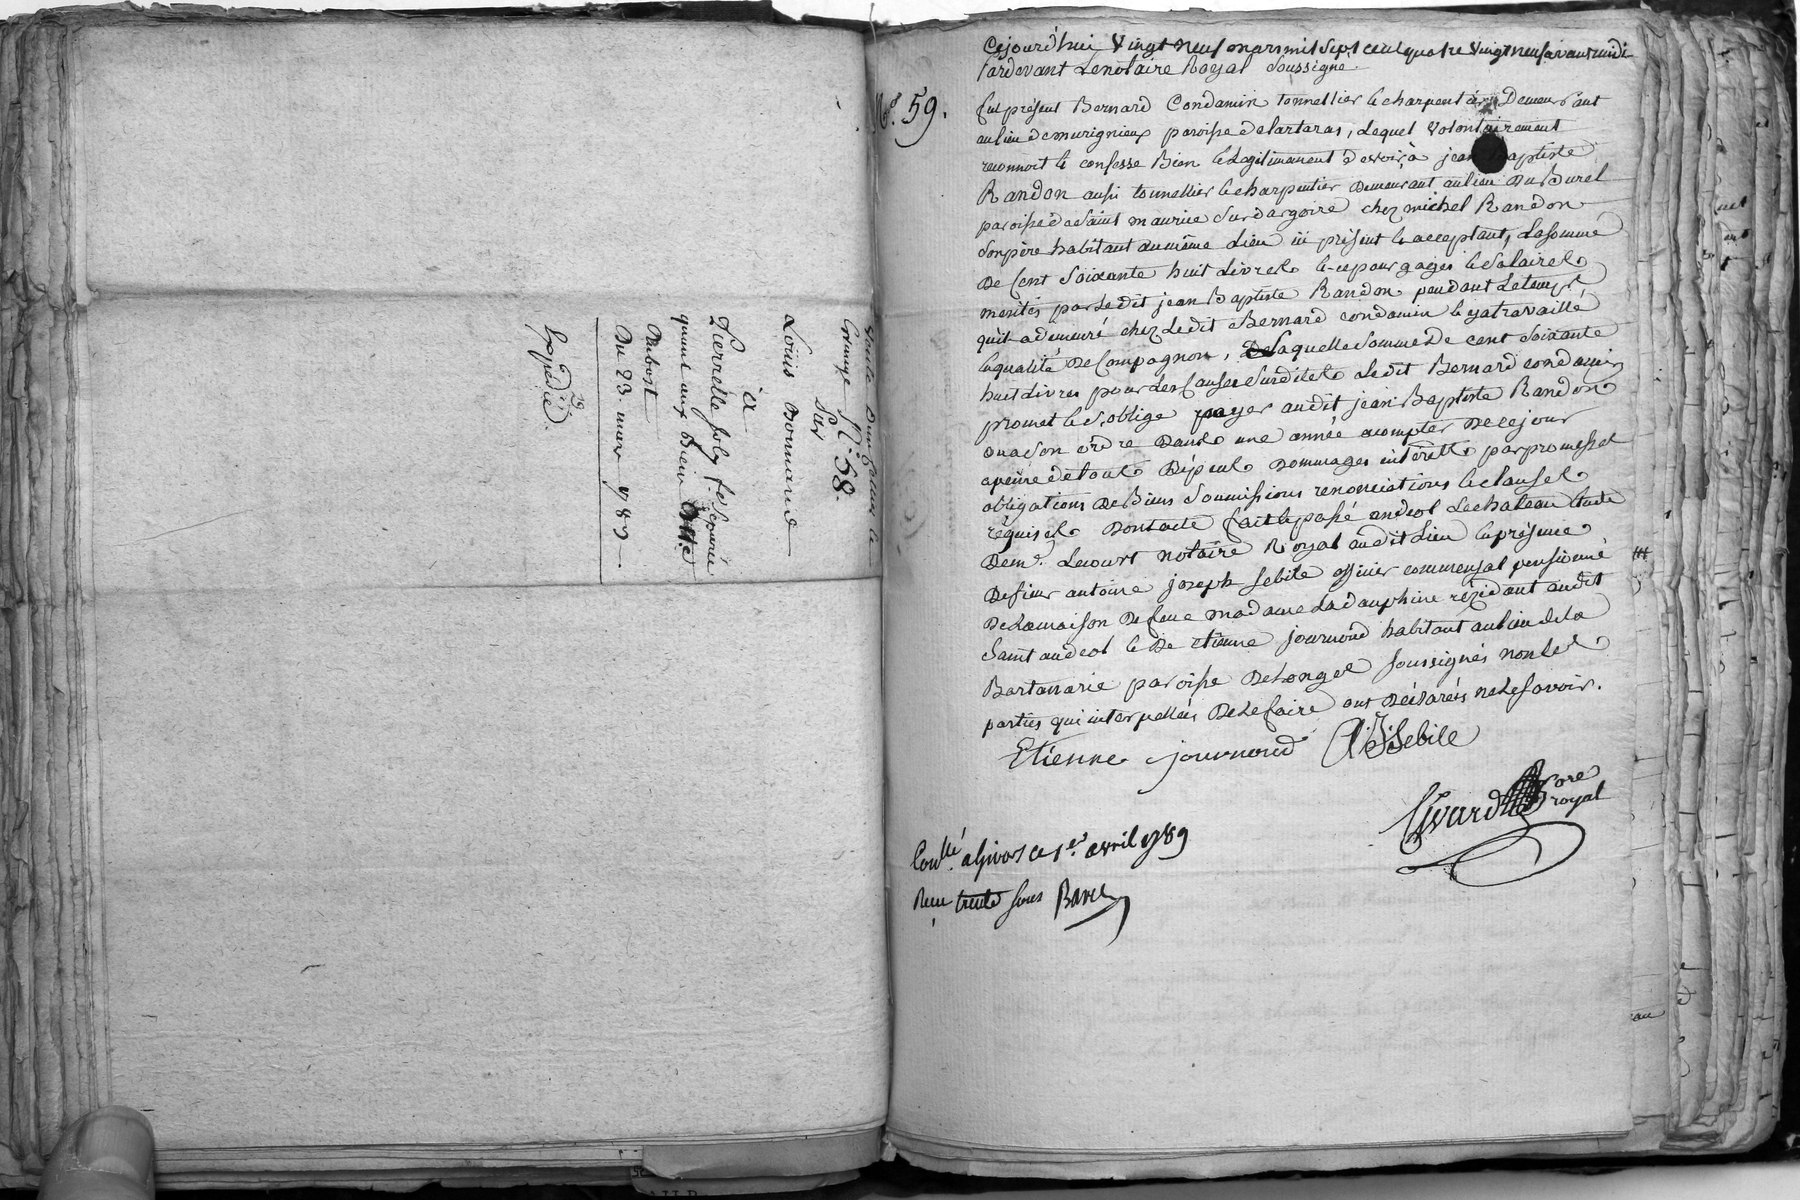 Louis Bonnand
à
Pierre de Joly
Dubost
Du 23 mars 1789
Expédié
N.º 58.
Sur
N.º 59.
Cejourd'hui Vingt neuf mars mil Sept cent quatre Vingt neuf avant midi
Pardevant Le notaire Royal Soussigné.
fut présent Bernard Condamin tonnellier & charpentier Demeurant
au lieu de murigneux paroisse de lartaras, Lequel Volontairement
reconnoit & confesse Bien & Legitimement devoir, à jean Baptiste
Randon aussi tonnellier & charpentier Demeurant au lieu Du Burel
paroisse de Saint maurice Sur dargoire chez michel Randon
Son père habitant au même Lieu ici présent & acceptant, La somme
De Cent Soixante huit Livres & ce pour gages & Salaires
merités par Ledit jean Baptiste Randon pendant Le temps
qu'il a demeuré chez Ledit Bernard condamin & y a travaillé
en qualité De Compagnon, Laquelle Somme De cent Soixante
huit Livres pour Les Causes Susdites Ledit Bernard condamin
promet & S'oblige payer audit jean Baptiste Randon
ou a Son ordre Dans une année a compter De ce jour
a peine de tous Dépens Dommages intérêts par promesses
obligations De Biens Soumissions renonciations & clauses
réquises Dont acte fait & passé a St andeol Le chateau Etude
De m.e Lecourt notaire Royal audit Lieu En présence
De Sieur antoine joseph Sebile officier commensal pensionné
De La maison De feue madame La dauphine residant audit
Saint andeol & De etienne journoud habitant au lieu de la
Bartanarie paroisse De Longes Soussignés non Les
parties qui interpellées De Le faire ont Déclarées ne Le Savoir.
Etienne journoud A J Sebile
Givard
ore royal
Con.llé a Givors ce 1.er avril 1789
Reçu trente Sous Barel